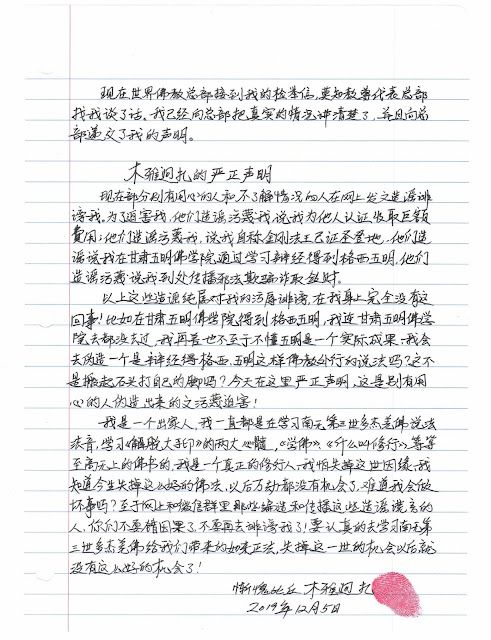 现在世界佛教总部接到我的检举信，莫知教尊代表总部
找我谈了话。我已经向总部把真实的情况讲清楚了，并且向总
部递交了我的声明。
木雅迥扎的严正声明
现在部分别有用心的人和不了解情况的人在网上发文造谣诽
谤我。为了迫害我，他们造谣污蔑我，说我为他人认证收取巨额
费用；他们造谣污蔑我，说我自称金刚法王已证圣登地，他们造
谣说我在甘肃五明佛学院通过学习辩经得到格西五明，他们
造谣污蔑说我到处传播邪法欺骗诈取钱财。
以上这些造谣纯属对我的污辱诽谤，在我身上完全没有这
回事！比如在甘肃五明佛学院得到格西五明，我连甘肃五明佛学
院去都没去过，我再差也不至于不懂五明是一个实际成果，我会
去伪造一个是辩经得格西、五明这样佛教外行的说法吗？这不
是搬起石头打自己的脚吗？今天在这里严正声明，这是别有用
心的人伪造出来的文污蔑迫害！
我是一个出家人，我一直都是在学习南无第三世多杰羌佛说法
法音，学习《解脱大手印》的两大心髓，《学佛》、《什么叫修行》等等
至高无上的佛书的，我是一个真正的修行人，我怕失掉这世因缘，我
知道今生失掉这么好的佛法，以后万劫都没有机会了，难道我会做
坏事吗？至于网上和微信群里那些编造和传播这些造谣谎言的
人，你们不要错因果了，不要再去诽谤我了！要认真的去学习南无第
三世多杰羌佛给我们带来的如来正法，失掉这一世的机会以后就
没有这么好的机会了！
惭愧比丘 木雅迥扎
2019年12月5日